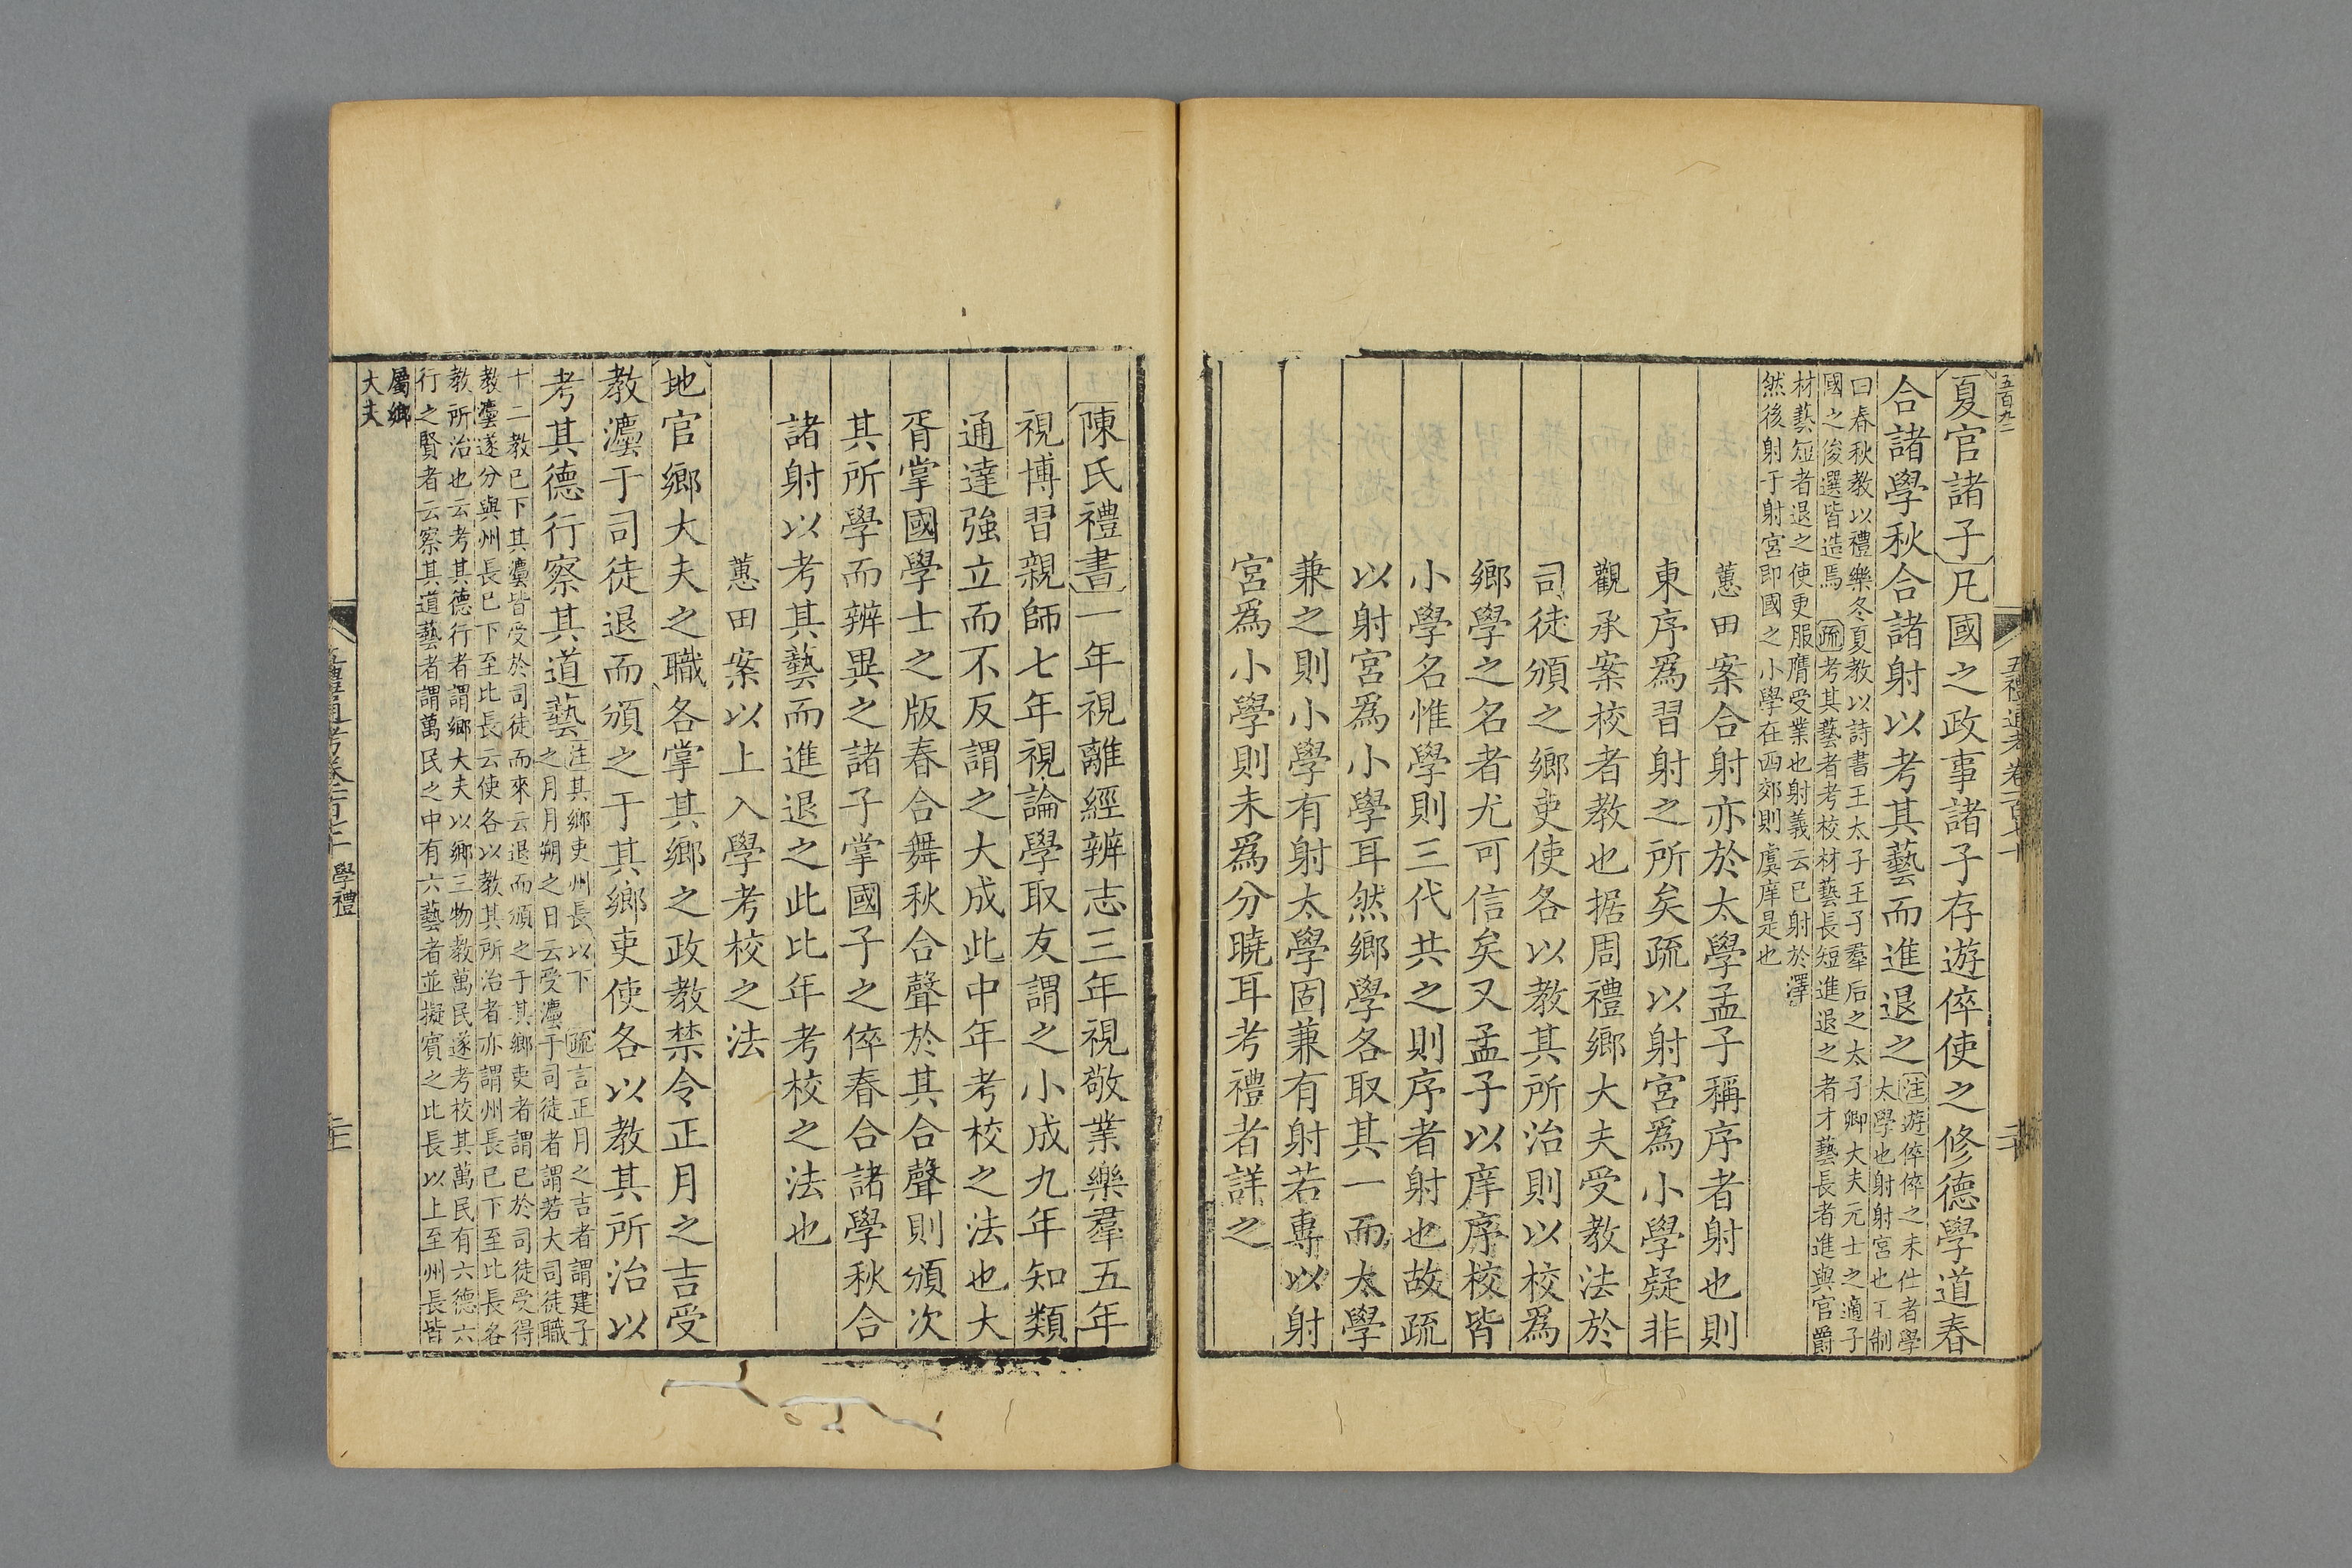 五百九二
五禮通考卷一百七十
二十
夏官諸子凡國之政事諸子存遊倅使之修德學道春
合諸學秋合諸射以考其藝而進退之注遊倅倅之未仕者學
太學也射射宮也王制
曰春秋教以禮樂冬夏教以詩書王太子王子羣后之太子卿大夫元士之適子
國之俊選皆造焉 疏考其藝者考校材藝長短進退之者才藝長者進與官爵
材藝短者退之使更服膺受業也射義云已射於澤
然後射于射宮即國之小學在西郊則虞庠是也
蕙田案合射亦於太學孟子稱序者射也則
東序爲習射之所矣疏以射宮爲小學疑非
觀承案校者教也据周禮鄉大夫受教法於
司徒頒之鄉吏使各以教其所治則以校爲
鄉學之名者尤可信矣又孟子以庠序校皆
小學名惟學則三代共之則序者射也故疏
以射宮爲小學耳然鄉學各取其一而太學
兼之則小學有射太學固兼有射若專以射
宮爲小學則未爲分曉耳考禮者詳之
陳氏禮書一年視離經辨志三年視敬業樂羣五年
視博習親師七年視論學取友謂之小成九年知類
通達強立而不反謂之大成此中年考校之法也大
胥掌國學士之版春合舞秋合聲於其合聲則頒次
其所學而辨異之諸子掌國子之倅春合諸學秋合
諸射以考其藝而進退之此比年考校之法也
蕙田案以上入學考校之法
地官鄉大夫之職各掌其鄉之政教禁令正月之吉受
教灋于司徒退而頒之于其鄉吏使各以教其所治以
考其德行察其道藝注其鄉吏州長以下 疏言正月之吉者謂建子
之月月朔之日云受灋于司徒者謂若大司徒職
十二教已下其灋皆受於司徒而來云退而頒之于其鄉吏者謂已於司徒受得
教灋遂分與州長已下至比長云使各以教其所治者亦謂州長已下至比長各
教所治也云考其德行者謂鄉大夫以鄉三物教萬民遂考校其萬民有六德六
行之賢者云察其道藝者謂萬民之中有六藝者並擬賓之比長以上至州長皆
屬鄉
大夫
學禮